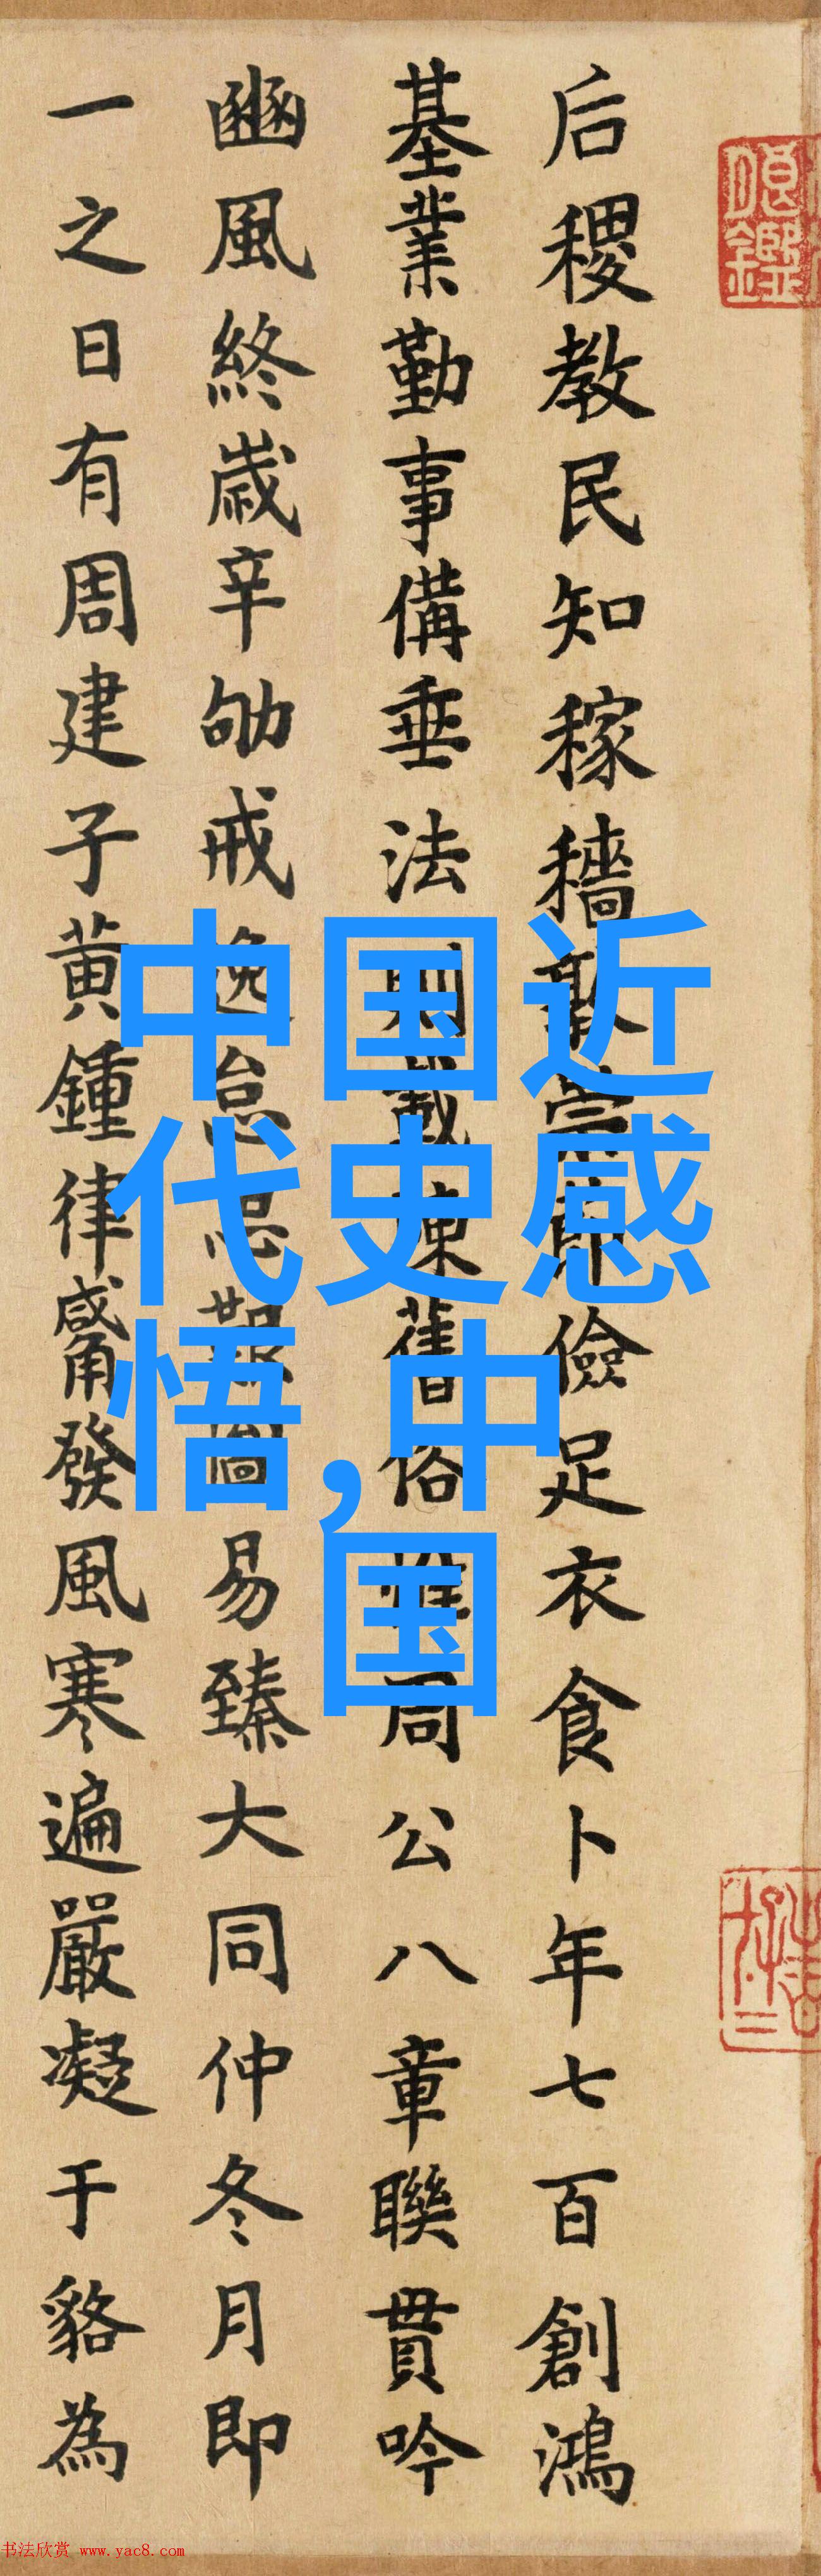 后稷教民知稼穡敦崇節儉足衣食卜年七百創鴻
基業勤事備垂法則載陳舊俗惟周公八章聯貫吟
豳風終歲辛劬戒逸怠思艱圖易臻大同仲冬月即
一之日有周建子黃鍾律觱發風寒遍嚴凝于貉為
中国近
代史感
悟,中
国
书法欣赏 www.yac8.com